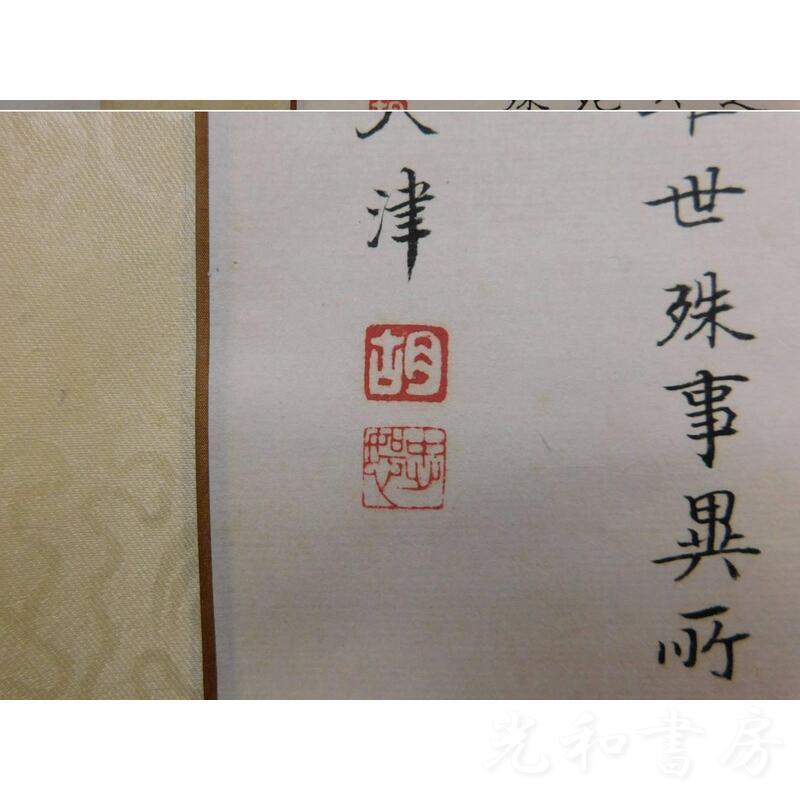 世殊事異所
天津
胡
光和書房